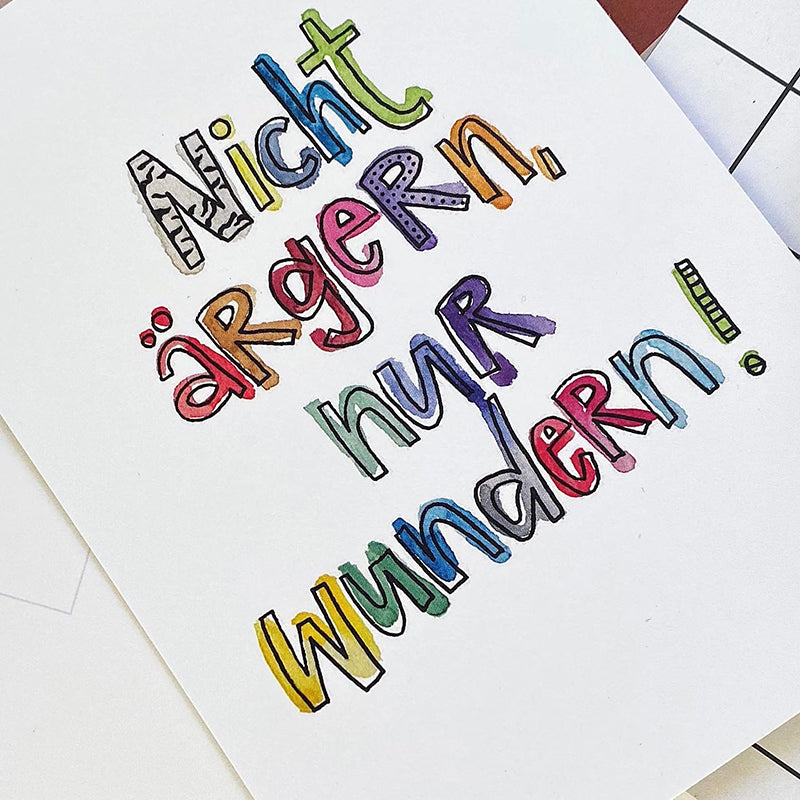 Nicht
ärgern,
nur
wundern!